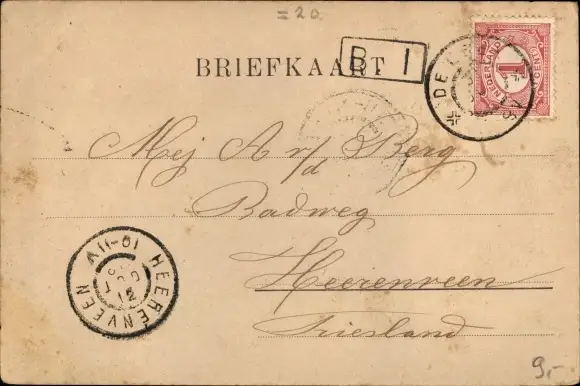 = 20.
BRIEFKAART
B I
NEDERLAND
1
CENT
Mej A v/d Berg
Badweg
Heerenveen
Friesland
HEERENVEEN
10-11 V
12
9,-